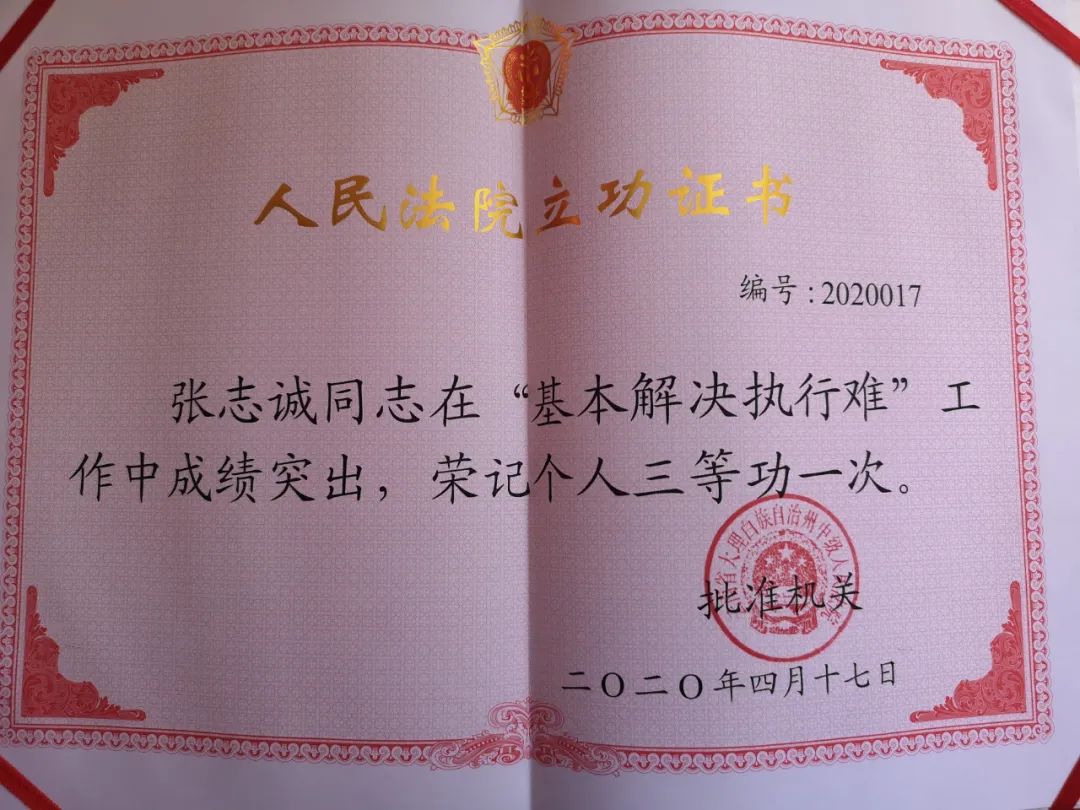 人民法院立功证书
编号：2020017
张志诚同志在“基本解决执行难”工
作中成绩突出，荣记个人三等功一次。
省大理白族自治州中级人
批准机关
二〇二〇年四月十七日